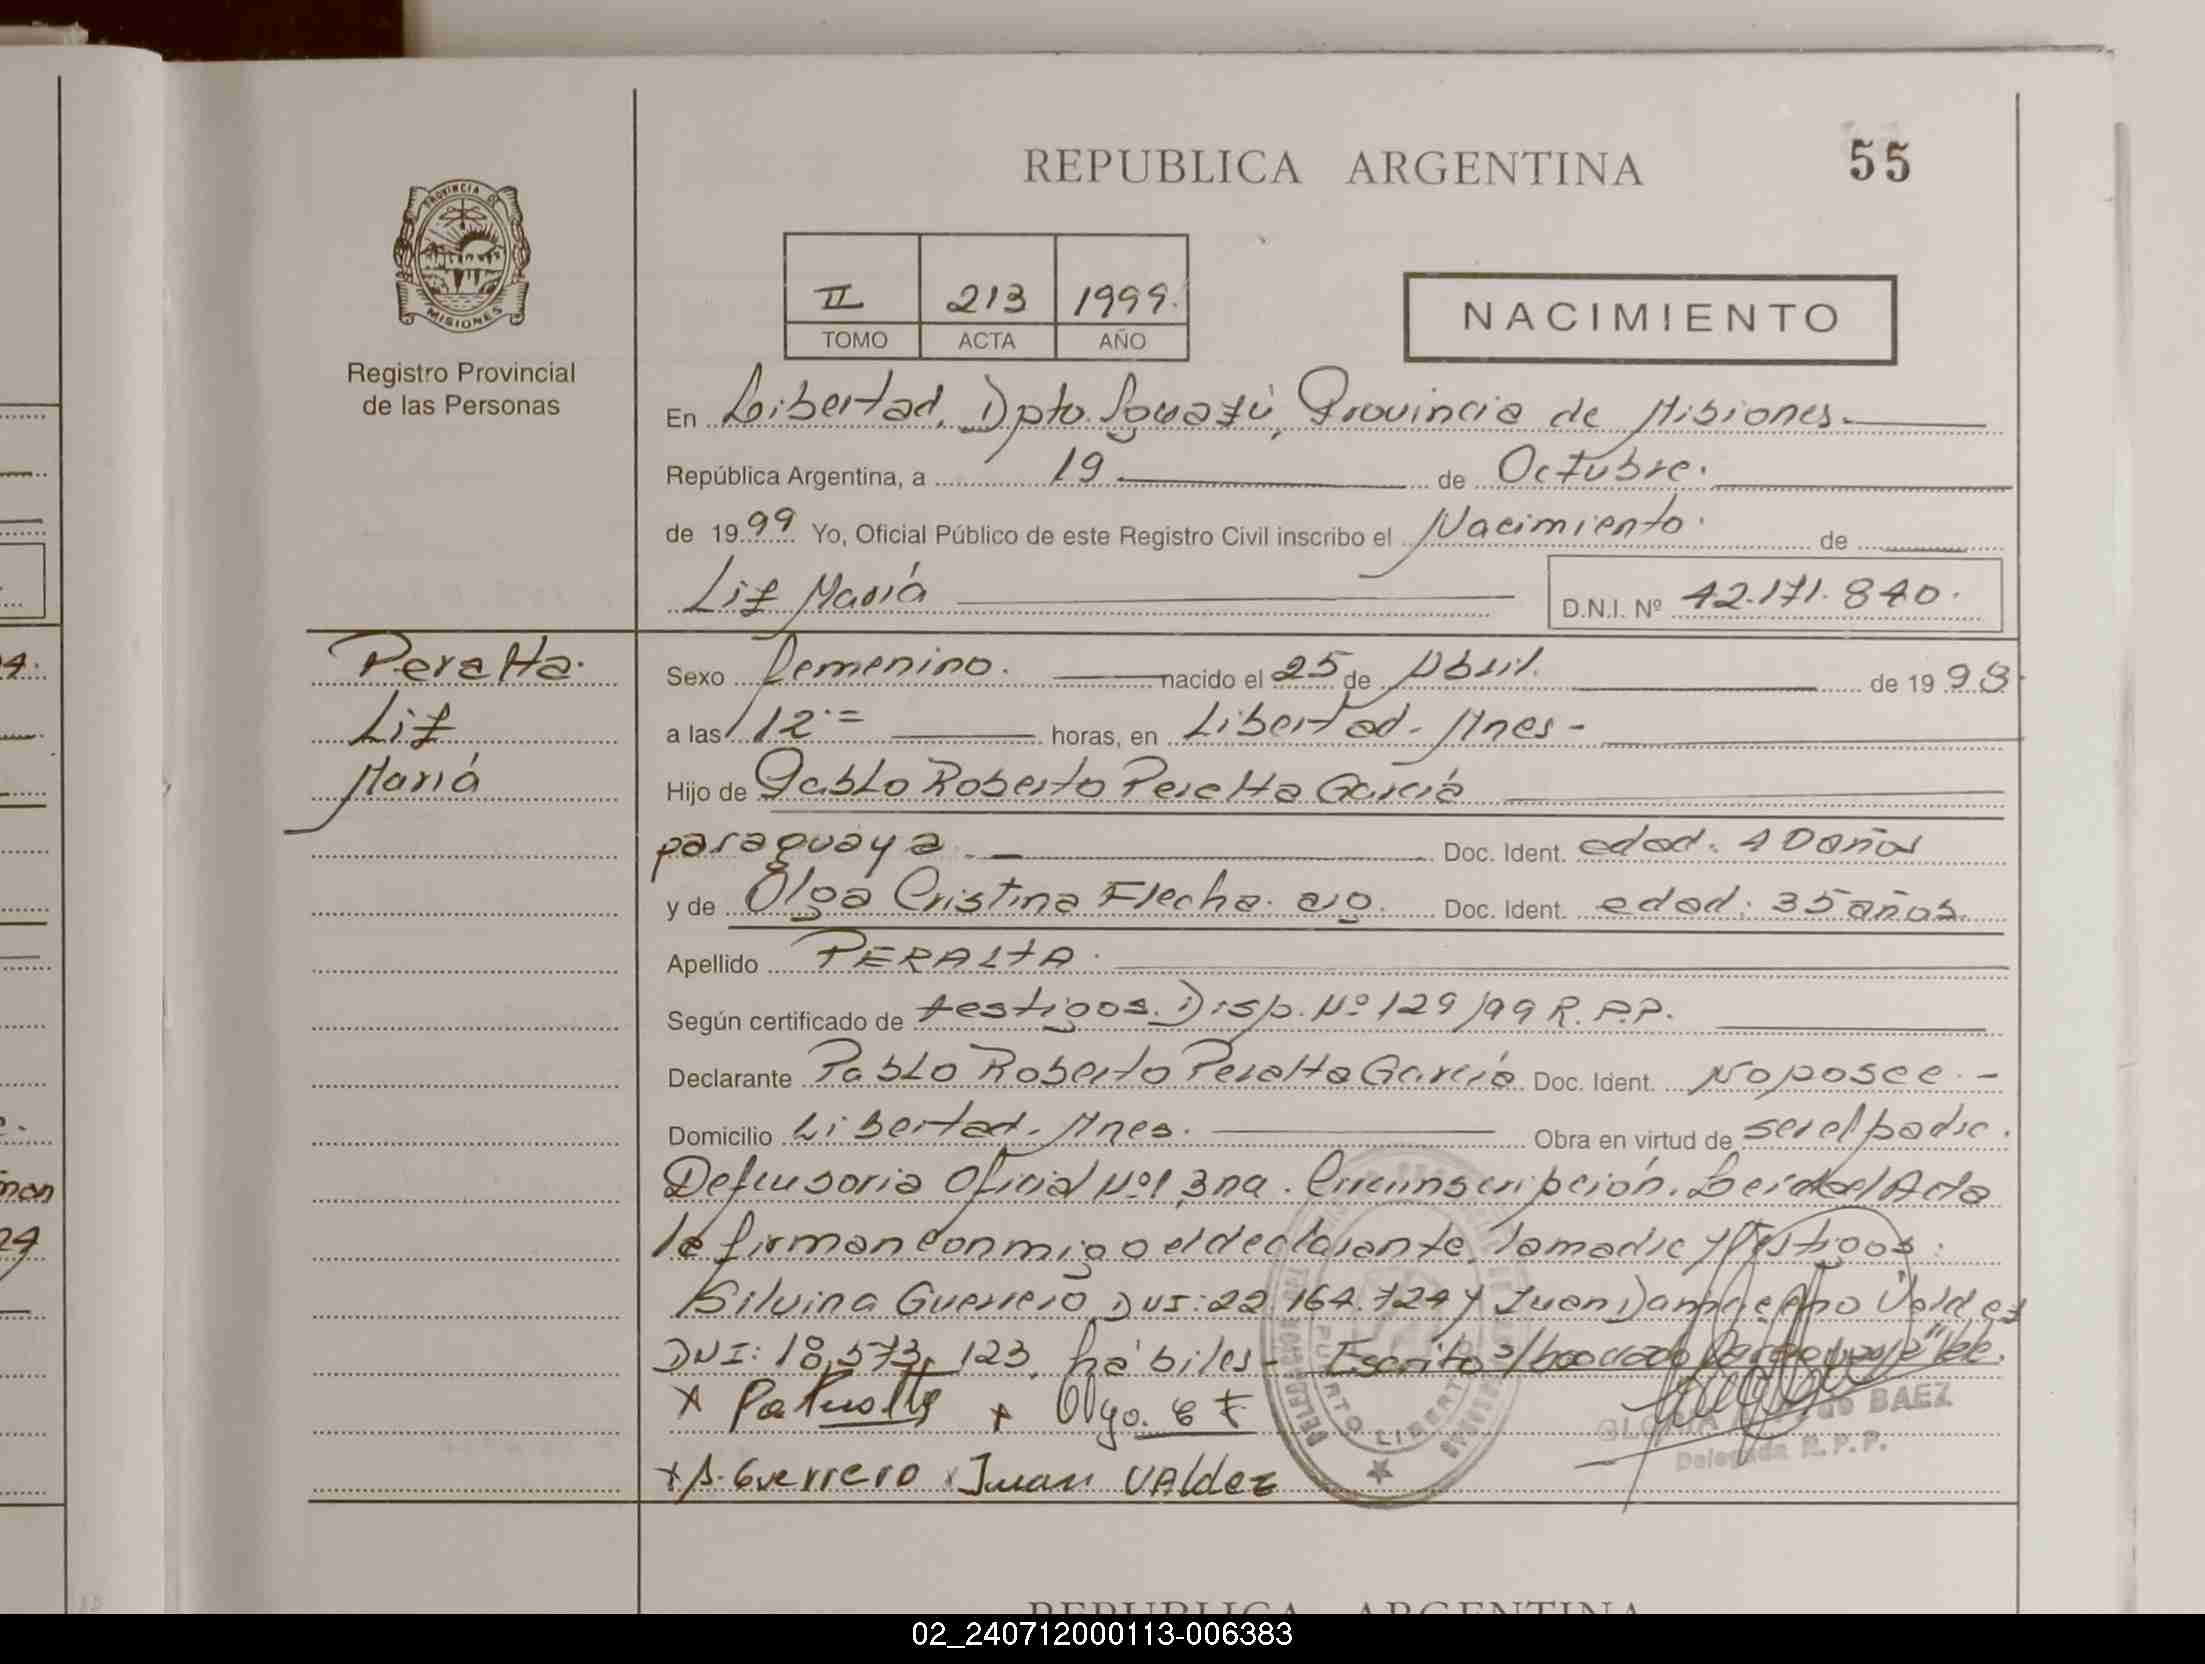 REPUBLICA ARGENTINA
55
PROVINCIA DE
MISIONES
Registro Provincial
de las Personas
II 213 1999.
TOMO ACTA AÑO
NACIMIENTO
En Libertad, Dpto. Iguazú, Provincia de Misiones.
República Argentina, a 19 de Octubre.
de 1999 Yo, Oficial Público de este Registro Civil inscribo el Nacimiento. de
Liz María
D.N.I. Nº 42.171.840.
Peralta.
Liz
María
Sexo femenino. nacido el 25 de Abril. de 1998
a las 12.= horas, en Libertad - Mnes -
Hijo de Pablo Roberto Peralta García
paraguaya. Doc. Ident. edad: 40 años
y de Olga Cristina Flecha. Doc. Ident. edad: 35 años.
Apellido PERALTA.
Según certificado de testigos. Disp. Nº 129/99 R.P.P.
Declarante Pablo Roberto Peralta García Doc. Ident. No posee.-
Domicilio Libertad. Mnes. Obra en virtud de ser el padre.
Defensoria Oficial Nº 1, 3na. Circunscripción. Leida el Acta
la firman conmigo el declarante, la madre y testigos:
Silvina Guerrero DNI: 22.164.724 y Juan Valdez
DNI: 18.573.123, hábiles - Escrito s/borrado
x x Olga. C F
x S. Guerrero x Juan VAldez
PUERTO LIBERTAD
BAEZ
Delegada R.P.P.
REPUBLICA ARGENTINA
02_240712000113-006383